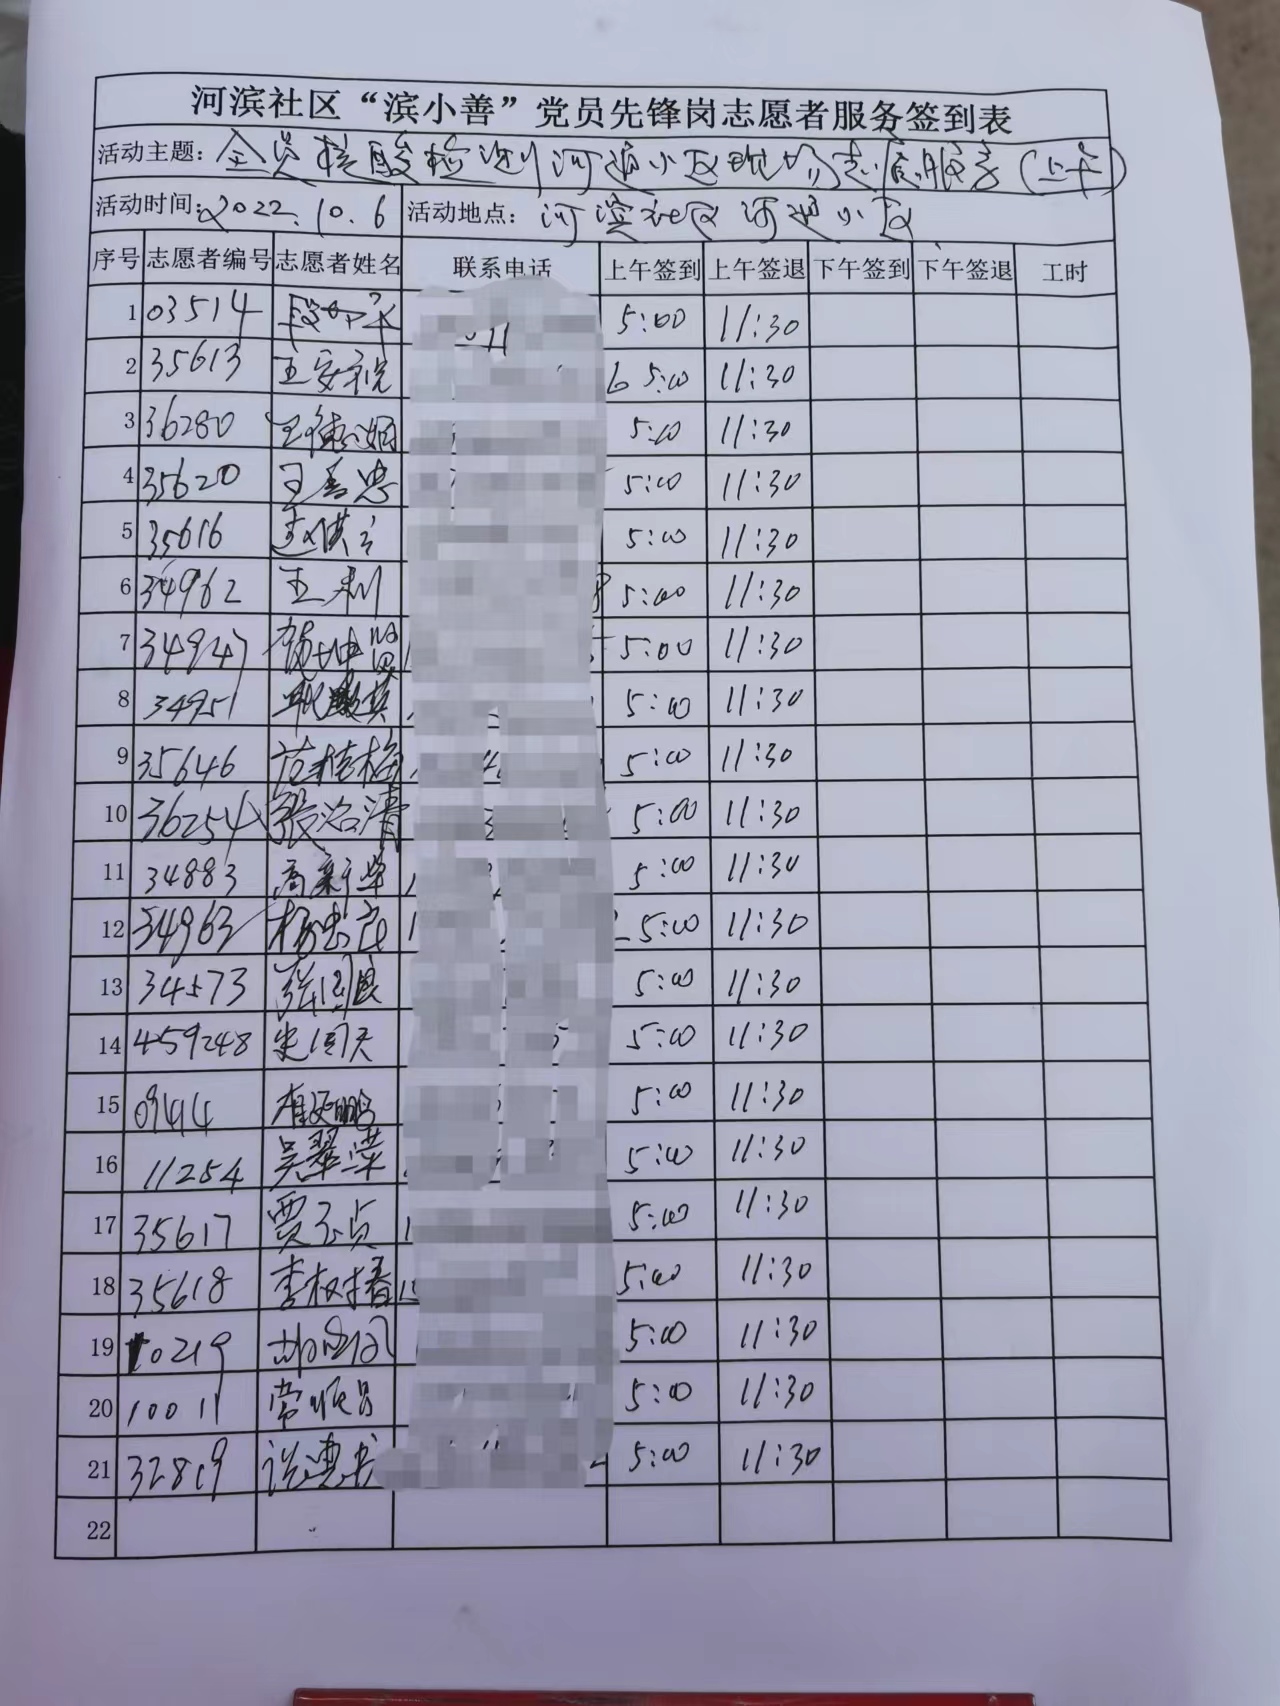 河滨社区“滨小善”党员先锋岗志愿者服务签到表
活动主题：全员核酸检测河通小区现场志愿服务（上午）
活动时间：2022.10.6 活动地点：河滨社区河通小区
序号 志愿者编号 志愿者姓名 联系电话 上午签到 上午签退 下午签到 下午签退 工时
1 03514 5:00 11:30
2 35613 王安锐 5:00 11:30
3 36280 5:00 11:30
4 35620 王善忠 5:00 11:30
5 35616 5:00 11:30
6 34962 王利 5:00 11:30
7 34947 5:00 11:30
8 34951 5:00 11:30
9 35646 范桂梅 5:00 11:30
10 36254 张治清 5:00 11:30
11 34883 高新华 5:00 11:30
12 34963 杨忠良 5:00 11:30
13 34573 张国良 5:00 11:30
14 459248 史国天 5:00 11:30
15 09414 5:00 11:30
16 11254 吴翠荣 5:00 11:30
17 35617 贾玉贞 5:00 11:30
18 35618 李树春 5:00 11:30
19 10219 5:00 11:30
20 10011 常顺昌 5:00 11:30
21 32819 5:00 11:30
22